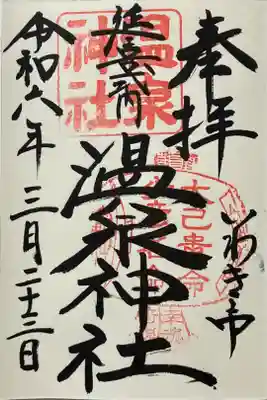 奉拝
いわき市
延喜式内
温泉神社
温泉
神社
令和六年
三月二十三日